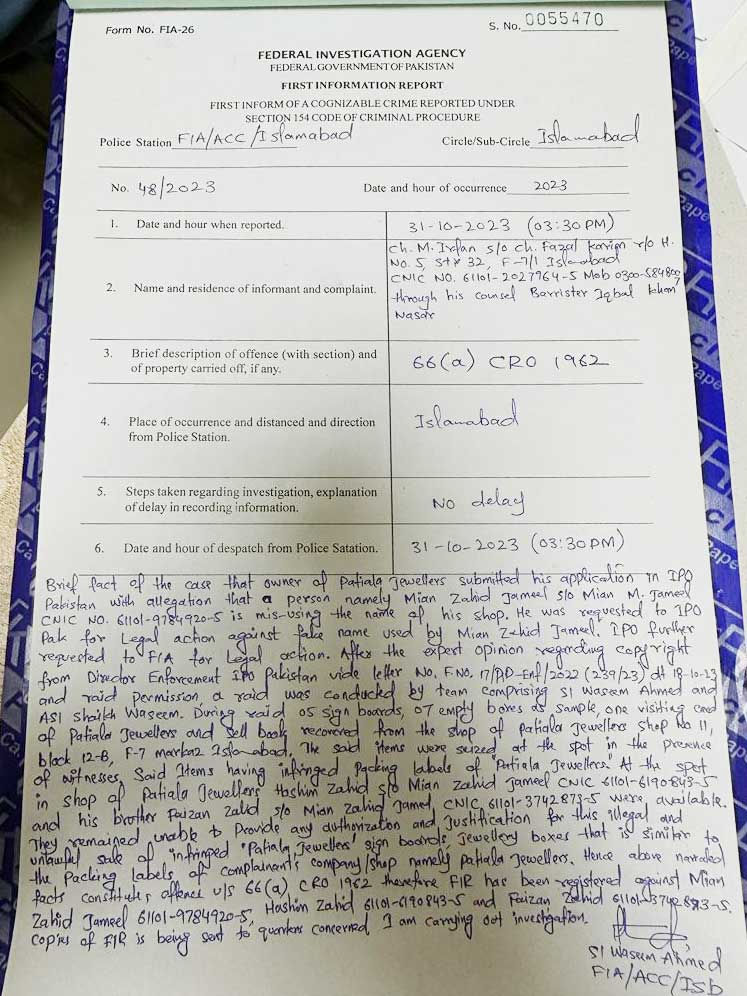 Form No. FIA-26
S. No. 0055470
FEDERAL INVESTIGATION AGENCY
FEDERAL GOVERNMENT OF PAKISTAN
FIRST INFORMATION REPORT
FIRST INFORM OF A COGNIZABLE CRIME REPORTED UNDER
SECTION 154 CODE OF CRIMINAL PROCEDURE
Police Station FIA/ACC/Islamabad Circle/Sub-Circle Islamabad
No. 48/2023 Date and hour of occurrence 2023
1. Date and hour when reported. 31-10-2023 (03:30PM)
2. Name and residence of informant and complaint.
Ch. M. Irfan s/o Ch. Fazal Karim r/o H.
No. 5, St# 32, F-7/1 Islamabad
CNIC NO. 61101-2027964-5 Mob
through his counsel Barrister Iqbal khan
Nasar
3. Brief description of offence (with section) and
of property carried off, if any.
66(a) CRO 1962
4. Place of occurrence and distanced and direction
from Police Station.
Islamabad
5. Steps taken regarding investigation, explanation
of delay in recording information.
No delay
6. Date and hour of despatch from Police Satation. 31-10-2023 (03:30PM)
Brief fact of the case that owner of Patiala Jewellers submitted his application in IPO
Pakistan with allegation that a person namely Mian Zahid Jameel s/o Mian M. Jameel
CNIC NO. 61101-9784920-5 is mis-using the name of his shop. He was requested to IPO
Pak for Legal action against fake name used by Mian Zahid Jameel. IPO further
requested to FIA for Legal action. After the expert opinion regarding copyright
from Director Enforcement IPO Pakistan vide letter No. F.NO. 17/ /2022 (239/23) dt 18-10-23
and raid permission, a raid was conducted by team comprising SI Waseem Ahmed and
ASI Shaikh Waseem. During raid 05 sign boards, 07 empty boxes as sample, one visiting card
of Patiala Jewellers and Sell book recovered from the shop of Patiala Jewellers Shop No. 11,
block 12-B, F-7 markaz Islamabad. The said items were seized at the spot in the presence
of witnesses. Said Items having infringed Packing labels of "Patiala Jewellers." At the spot
in shop of Patiala Jewellers Hashim Zahid s/o Mian Zahid Jameel CNIC 61101-6190843-5
and his brother Faizan Zahid s/o Mian Zahid Jamel, CNIC, 61101-3742873-5 were available.
They remained unable to Provide any authorization and Justification for this illegal and
unlawful sale of infringed "Patiala Jewellers" sign boards, Jewellery boxes that is similar to
the Packing labels of complainant's company/shop namely patiala Jewellers. Hence above narrated
facts constitutes offence u/s 66(a) CRO 1962 therefore FIR has been registered against Mian
Zahid Jameel 61101-9784920-5, Hashim Zahid 61101-6190843-5 and Faizan Zahid
Copies of FIR is being sent to quarters concerned, I am carrying out investigation.
SI Waseem Ahmed
FIA/ACC/Isb